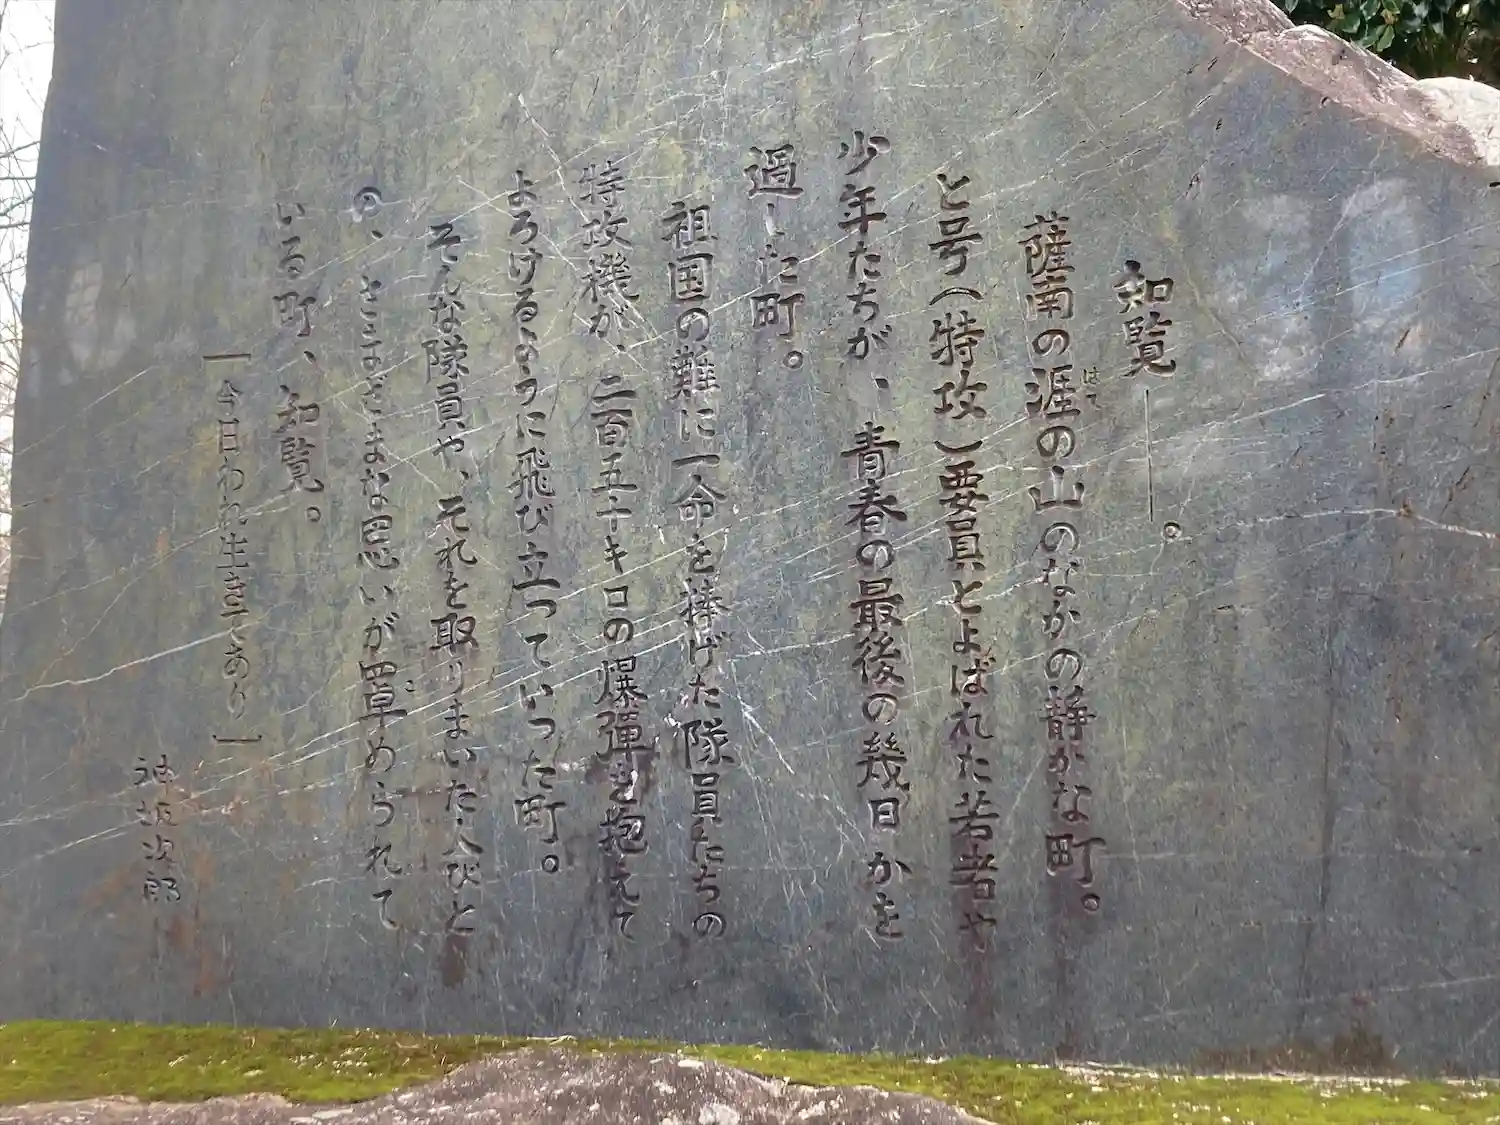 知覧―。
薩南の涯の山のなかの静かな町。
はて
と号(特攻)要員とよばれた若者や
少年たちが、青春の最後の幾日かを
過した町。
祖国の難に一命を捧げた隊員たちの
特攻機が、二百五十キロの爆弾を抱えて
よろけるように飛び立っていった町。
そんな隊員や、それを取りまいた人びと
の、さまざまな思いが罩められて
こ
いる町、知覧。
[今日われ生きてあり]
神坂次郎